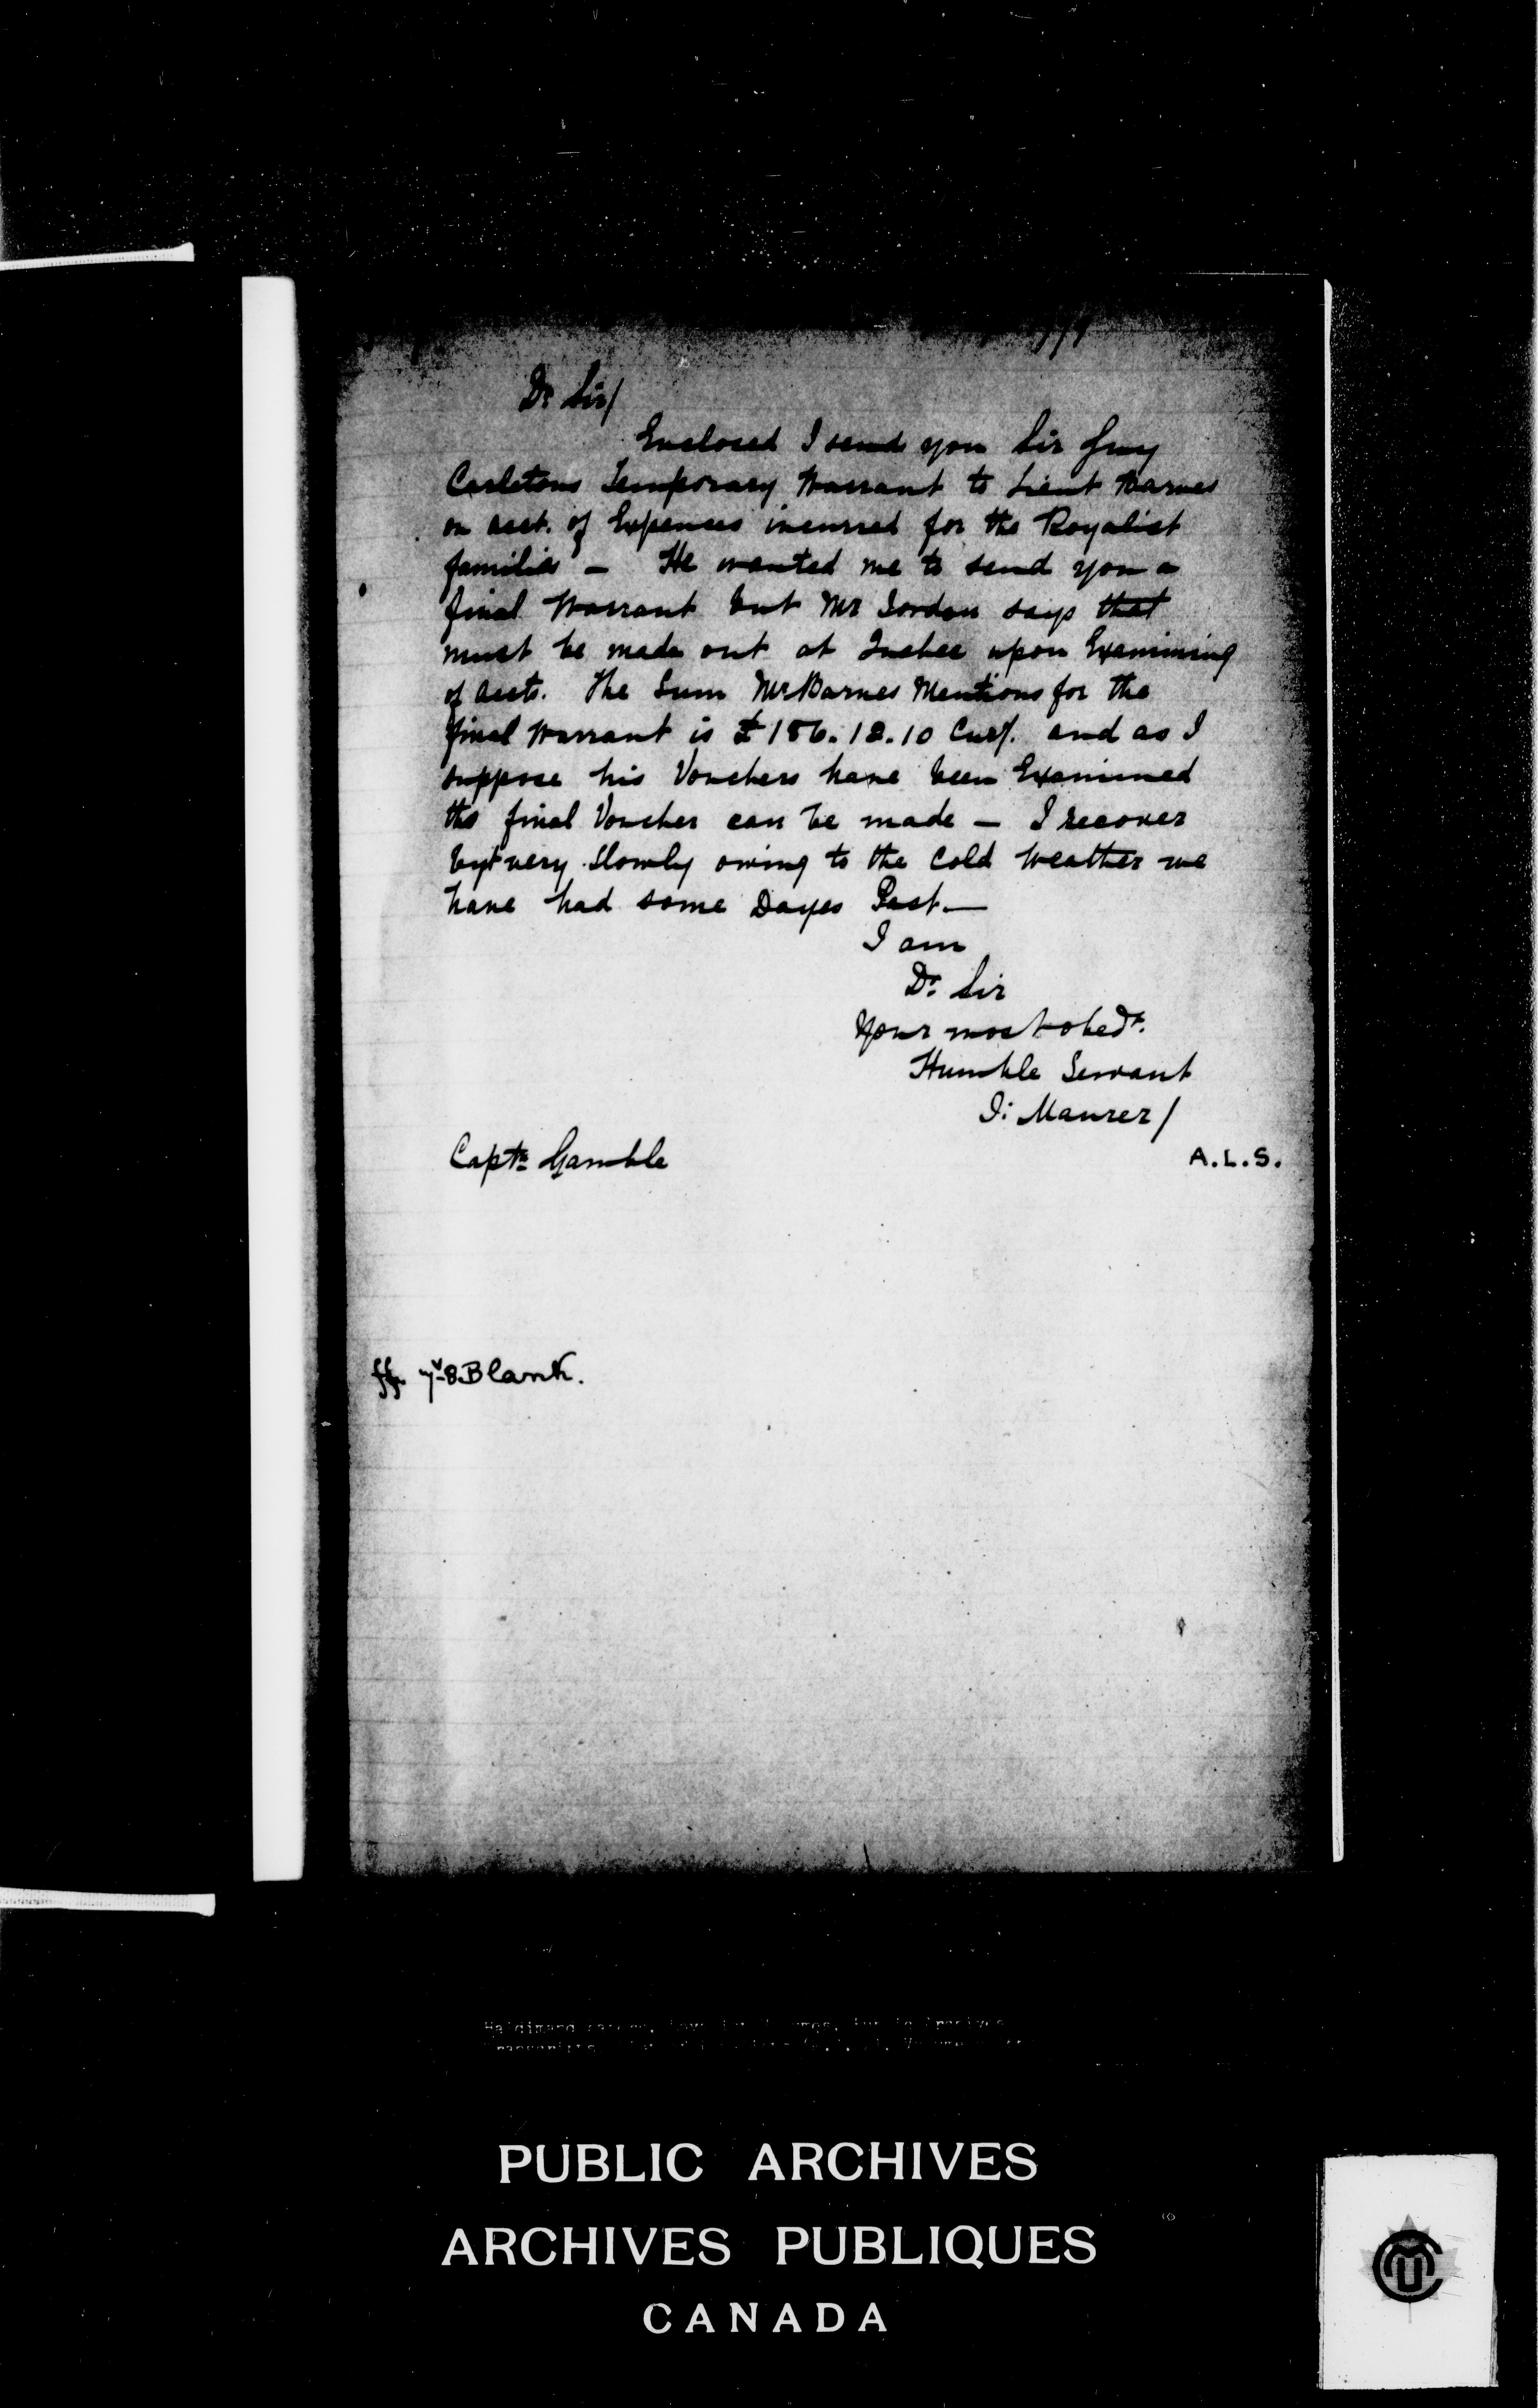 Dr Sir/
Enclosed I send you Sir Guy
Carletons Temporary Warrant to Lieut Barnes
on acct. of Expences incurred for the Royalist
families — He wanted me to send you a
final Warrant but Mr Jordan says that
must be made out at Quebec upon Examining
of accts. The Sum Mr Barnes Mentions for the
final Warrant is £186.12.10 Curr. and as I
suppose his Vouchers have been Examined
the final Voucher can be made — I recover
but very Slowly owing to the Cold Weather we
have had some Dayes Past.—
I am
Dr Sir
Your most obedt.
Humble Servant
J: Maurer/
Captn Gamble
A.L.S.
Blank.
PUBLIC ARCHIVES
ARCHIVES PUBLIQUES
CANADA